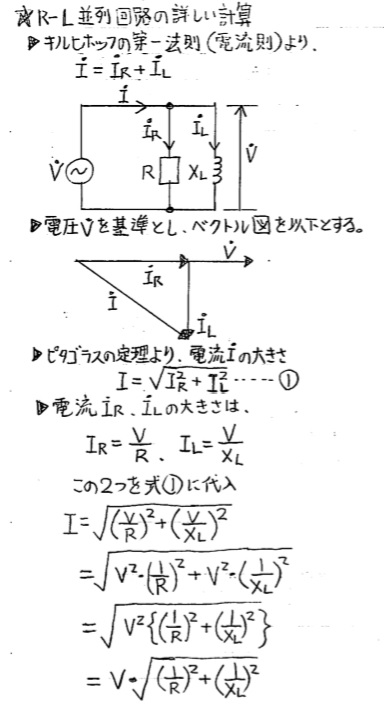 ☆R-L並列回路の詳しい計算
▶キルヒホッフの第一法則(電流則)より、
İ=İR+İL
İ
İR
İL
V̇
R
XL
V̇
▶電圧V̇を基準とし、ベクトル図を以下とする。
V̇
İR
İ
İL
▶ピタゴラスの定理より、電流İの大きさ
I=√(IR²+IL²)……①
▶電流İR、İLの大きさは、
IR=V/R、IL=V/XL
この2つを式①に代入
I=√((V/R)²+(V/XL)²)
=√(V²・(1/R)²+V²・(1/XL)²)
=√(V²{(1/R)²+(1/XL)²})
=V・√((1/R)²+(1/XL)²)